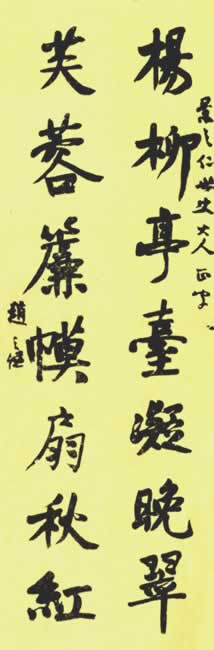 仁世丈大人正字
楊柳亭臺凝晚翠
芙蓉簾幙扇秋紅
趙之